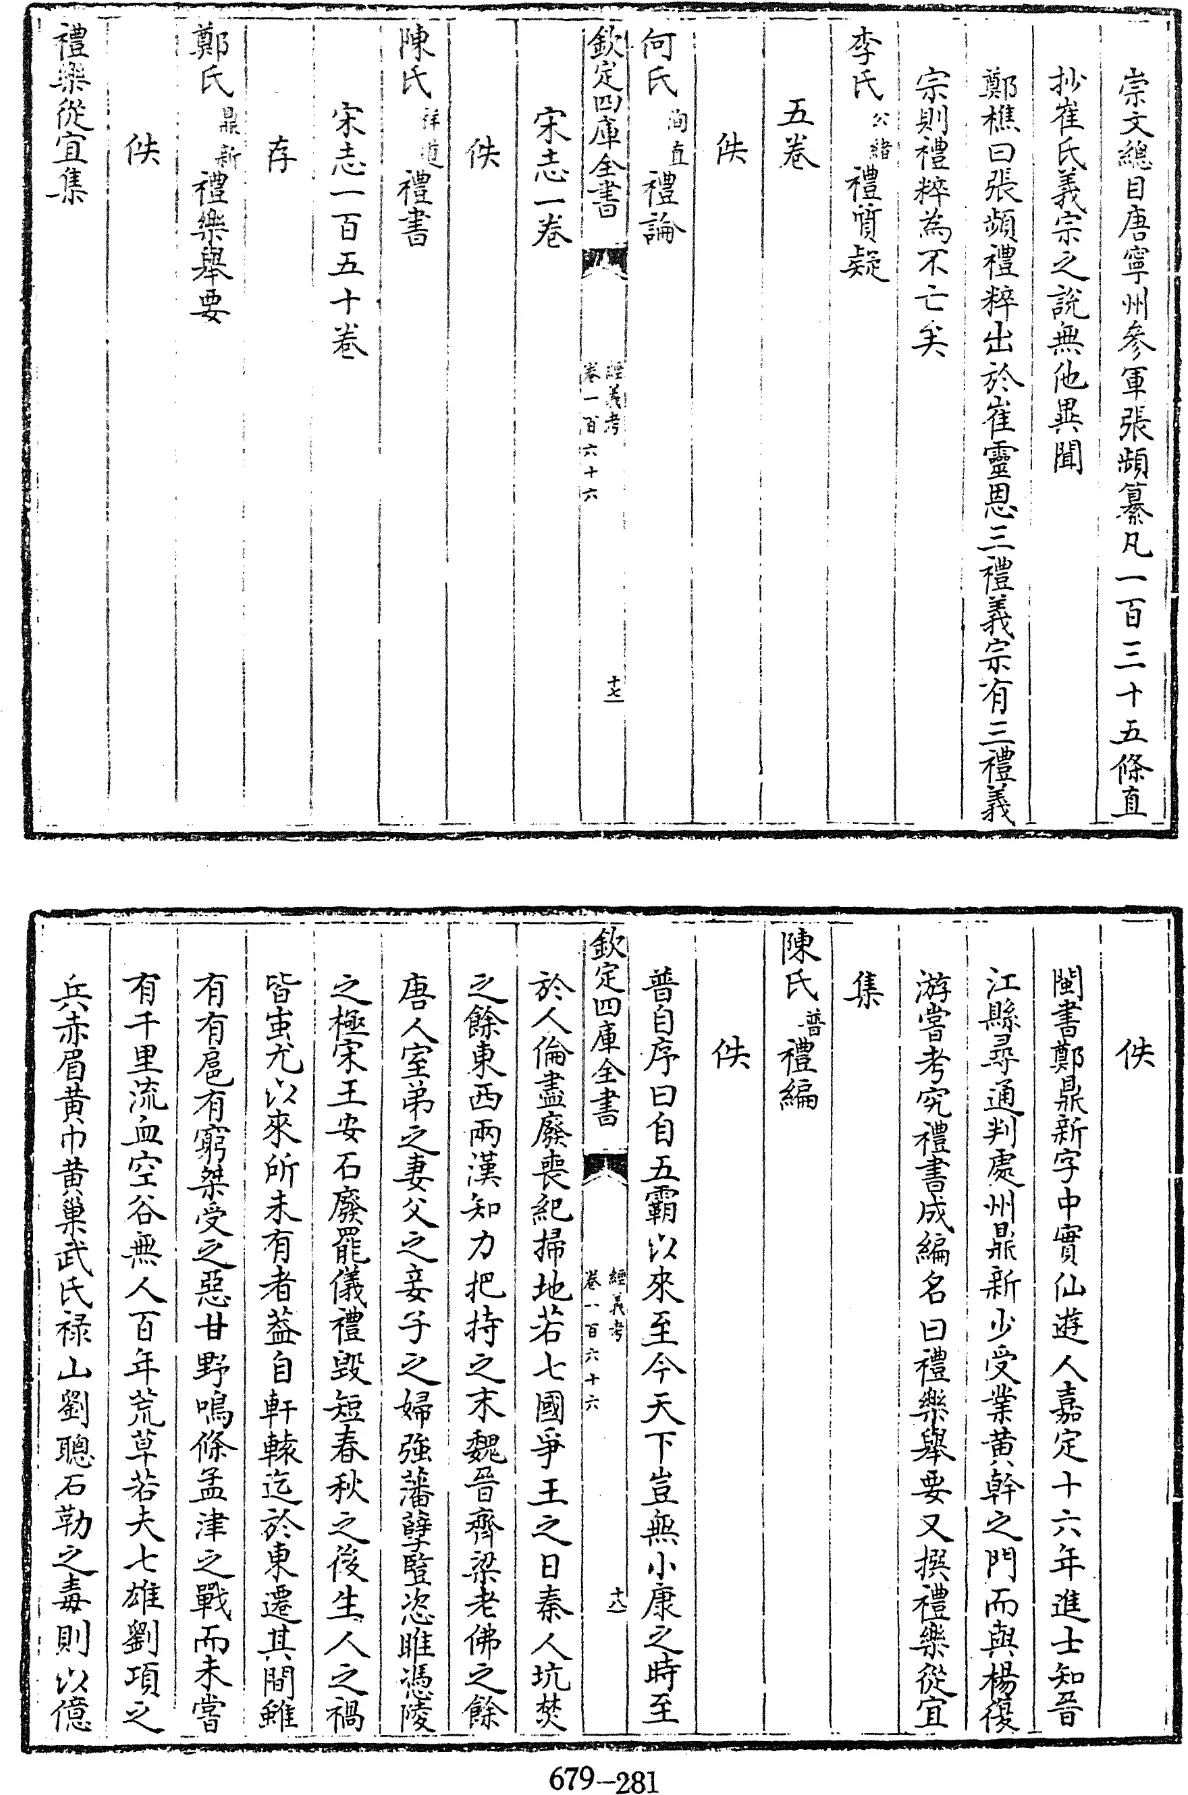 崇文總目唐寧州參軍張頻纂凡一百三十五條直
抄崔氏義宗之説無他異聞
鄭樵曰張頻禮粹出於崔靈恩三禮義宗有三禮義
宗則禮粹為不亡矣
李氏公緒禮質疑
五卷
佚
何氏洵直禮論
欽定四庫全書
經義考
卷一百六十六
十七
宋志一卷
佚
陳氏祥道禮書
宋志一百五十卷
存
鄭氏鼎新禮樂舉要
佚
禮樂從宜集
佚
閩書鄭鼎新字中實仙遊人嘉定十六年進士知晉
江縣尋通判處州鼎新少受業黄幹之門而與楊復
游嘗考究禮書成編名曰禮樂舉要又撰禮樂從宜
集
陳氏普禮編
佚
普自序曰自五霸以來至今天下豈無小康之時至
欽定四庫全書
經義考
卷一百六十六
十八
於人倫盡廢喪紀掃地若七國爭王之日秦人坑焚
之餘東西兩漢知力把持之末魏晉齊梁老佛之餘
唐人室弟之妻父之妾子之婦強藩孽豎恣睢憑陵
之極宋王安石廢罷儀禮毀短春秋之後生人之禍
皆蚩尤以來所未有者葢自軒轅迄於東遷其間雖
有有扈有窮桀受之惡甘野鳴條孟津之戰而未嘗
有千里流血空谷無人百年荒草若夫七雄劉項之
兵赤眉黄巾黄巢武氏禄山劉聰石勒之毒則以億
679-281